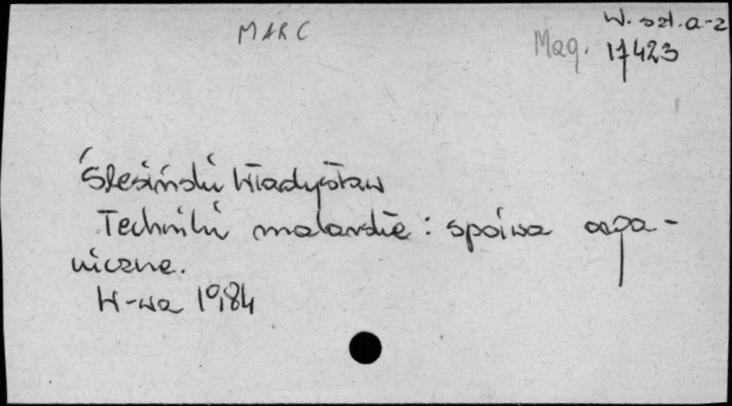 MARC
W. szt. a-z
Mag. 17423
Ślesiński Władysław
Techniki malarskie : spoiwa orga-
niczne.
W-wa 1984